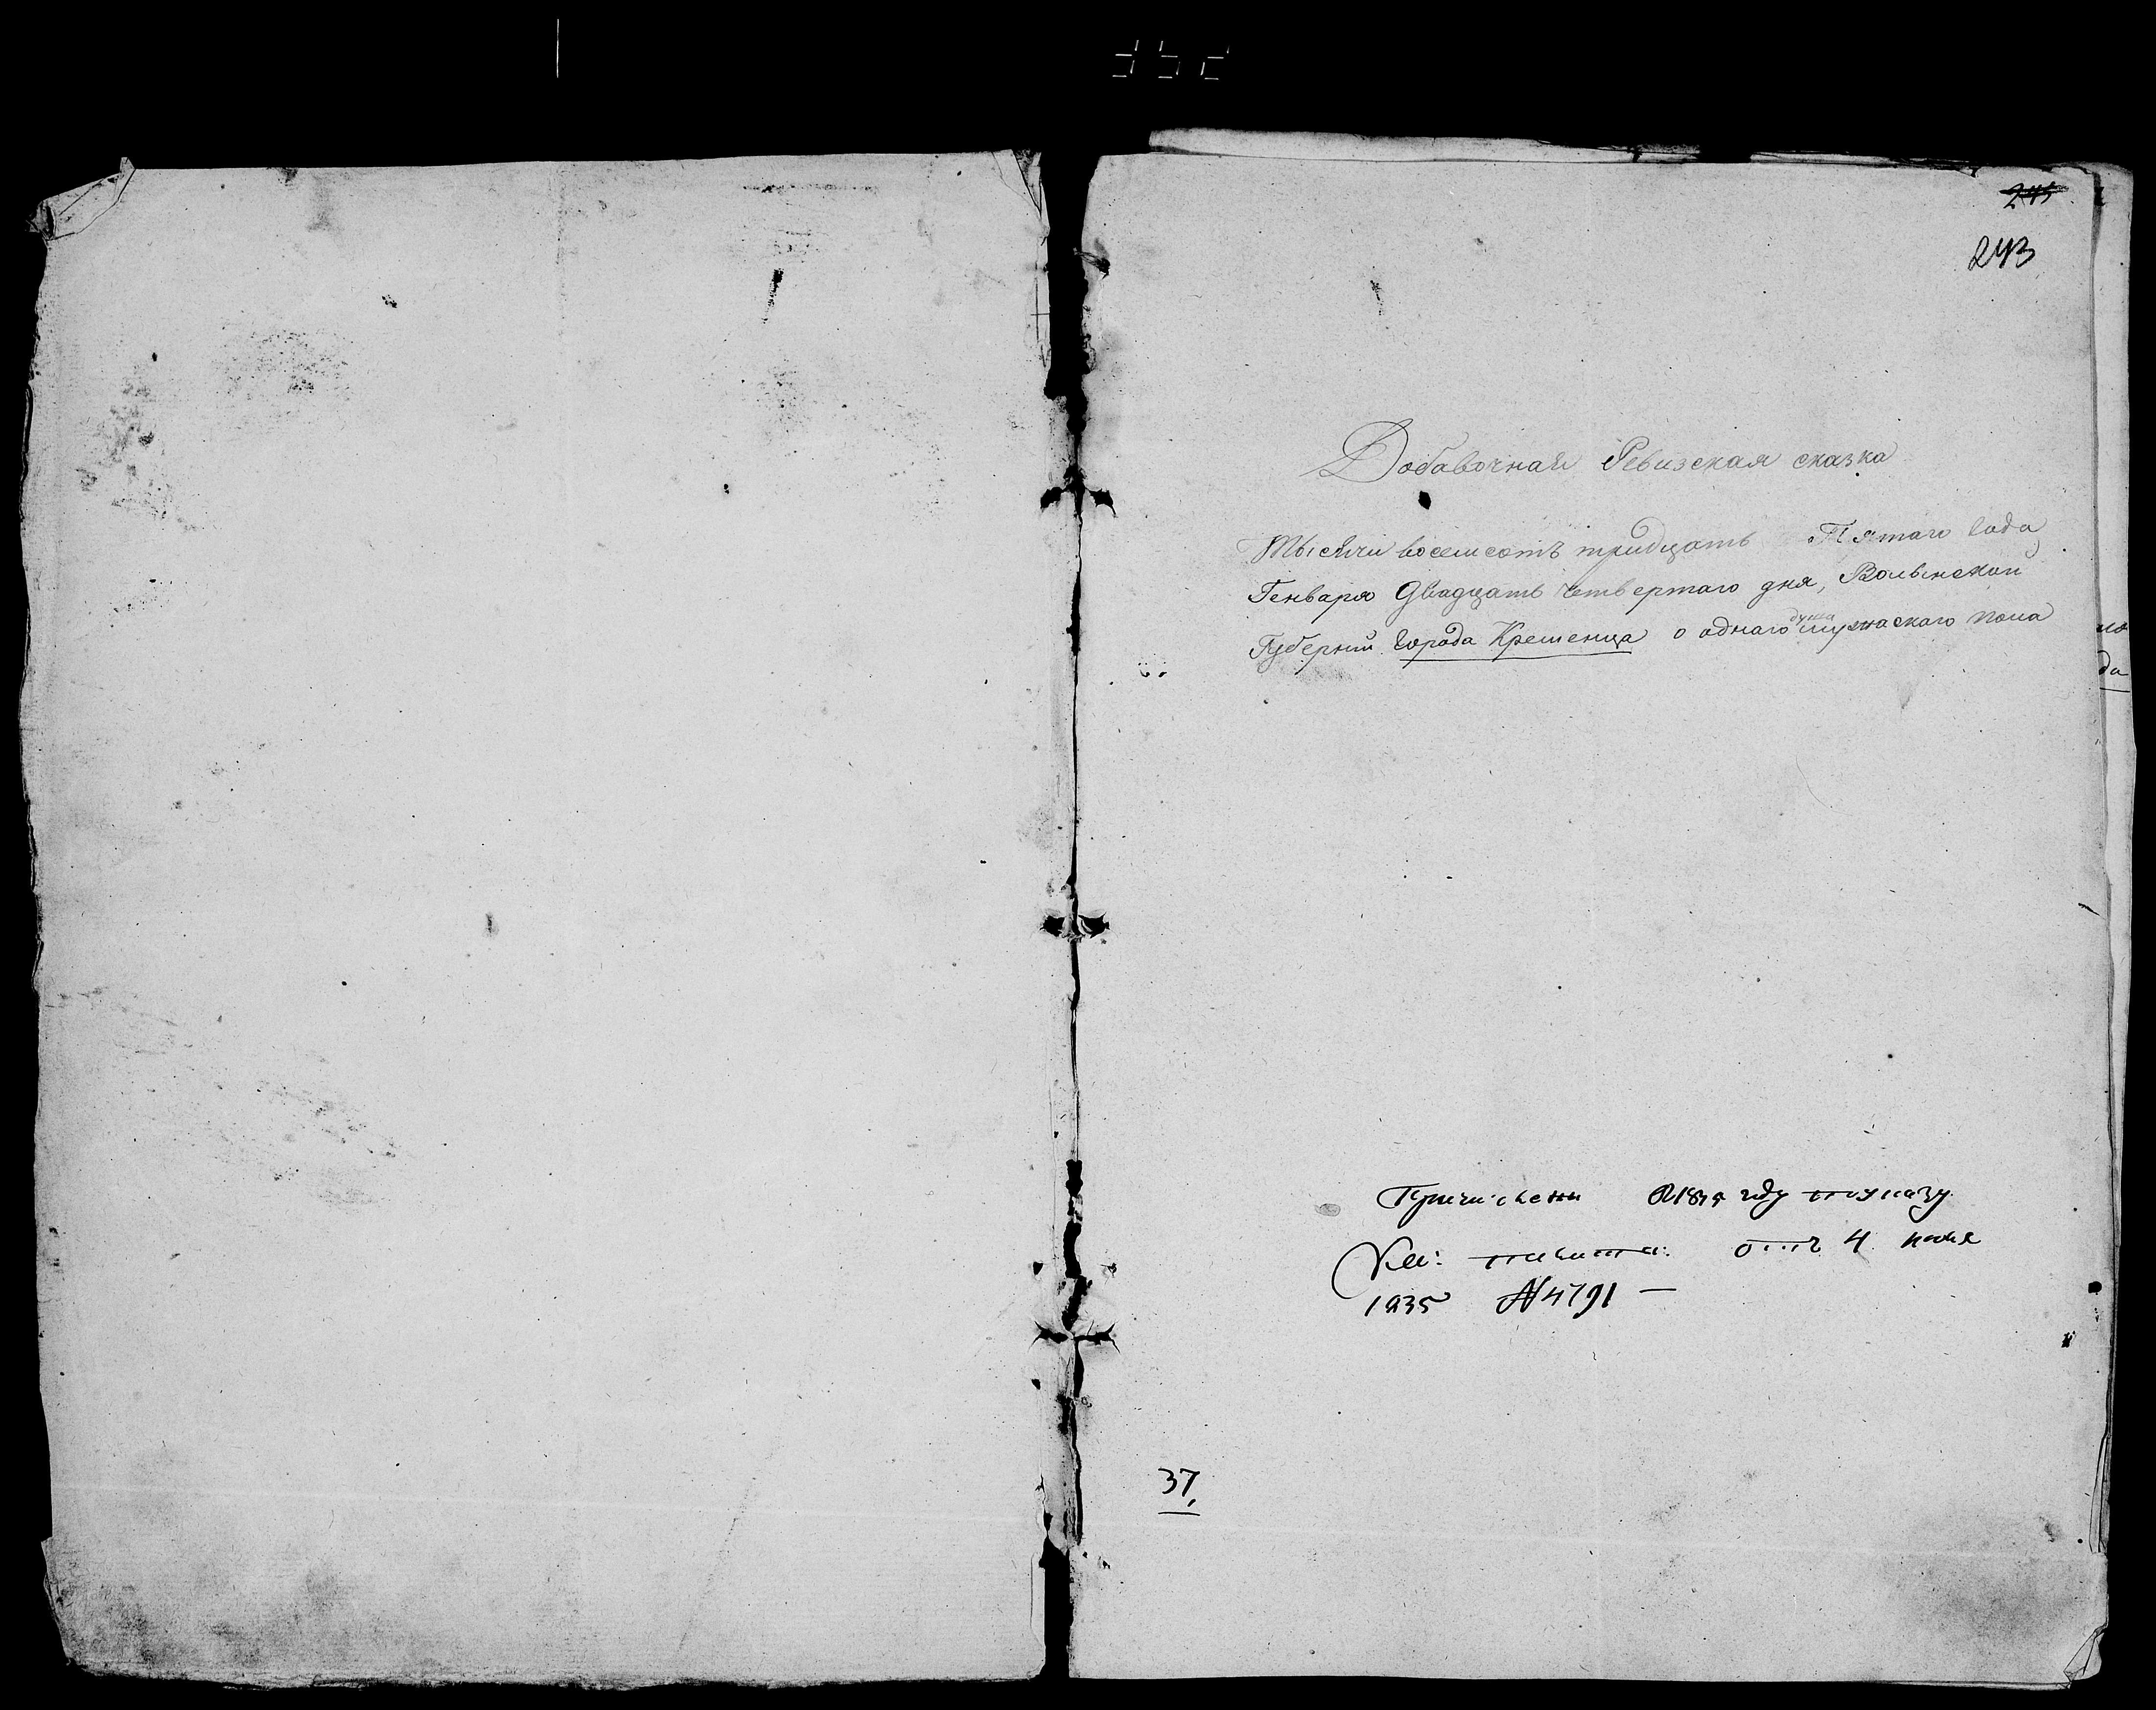 245
243
Добавочная Ревизская сказка
Тысячи восемсотъ тридцать Пятаго года
Генваря Двадцать четвертаго дня, Волынской
Губернии города Кременца о однаго душа мужескаго пола
Причислены в 1835 году по указу
Ка: палаты отъ 4 июня
1835 № 4791 —
37,
да